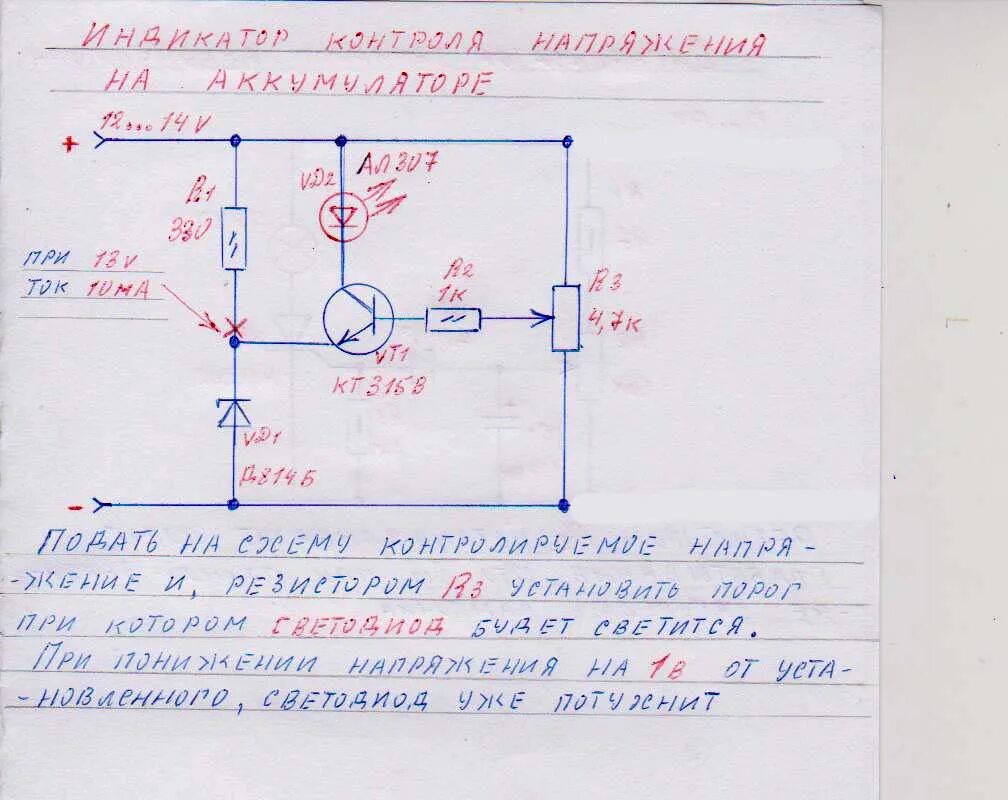 ИНДИКАТОР КОНТРОЛЯ НАПРЯЖЕНИЯ
НА АККУМУЛЯТОРЕ
+ 12...14V
R1
330
VD2
АЛ307
ПРИ 13V
ТОК 10МА
R2
1К
R3
4,7К
VT1
КТ315В
VD1
Д814Б
-
ПОДАТЬ НА СХЕМУ КОНТРОЛИРУЕМОЕ НАПРЯ-
-ЖЕНИЕ И, РЕЗИСТОРОМ R3 УСТАНОВИТЬ ПОРОГ
ПРИ КОТОРОМ СВЕТОДИОД БУДЕТ СВЕТИТСЯ.
ПРИ ПОНИЖЕНИИ НАПРЯЖЕНИЯ НА 1В ОТ УСТА-
-НОВЛЕННОГО, СВЕТОДИОД УЖЕ ПОТУХНИТ